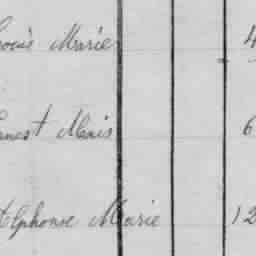 Louis Marie 4
Ernest Maris 6
Alphonse Marie 12